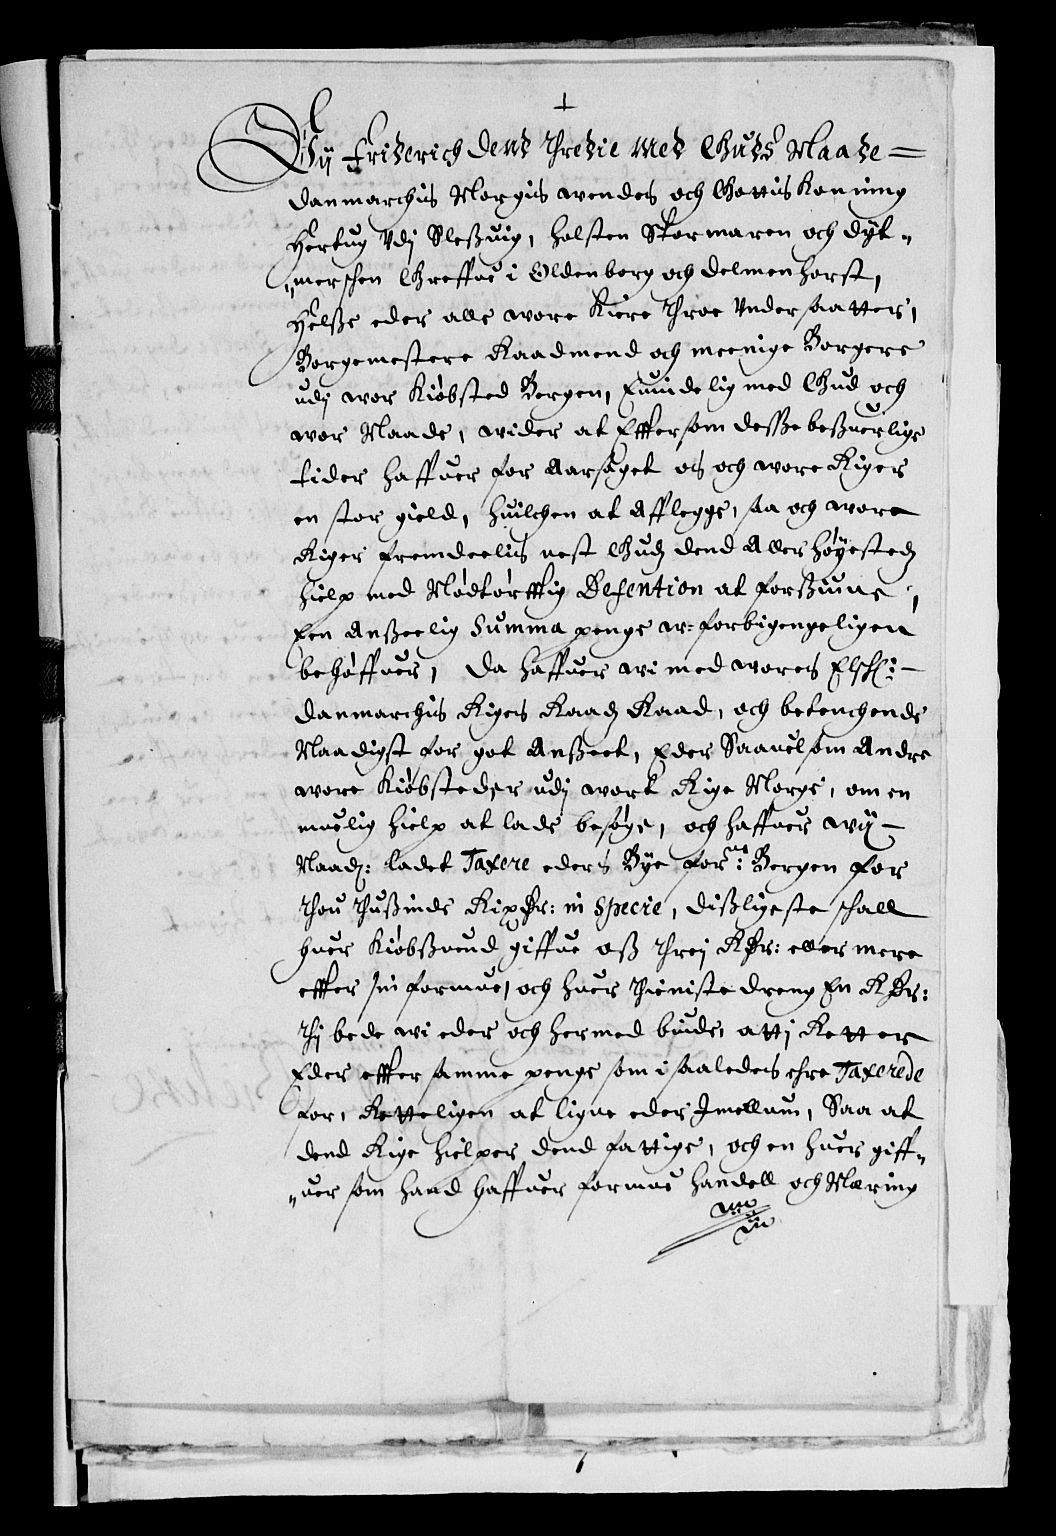 +
Wy Friderich dend Thredie Med Guds Naade =
Danmarchis Norgis Wendes och Gottis Konning
Hertug Udj Sleßuig, Holsten Stormaren och Dyt-
merschen Greffue i Oldenborg och Delmenhorst,
Helße eder alle wore kiere throe Vndersaatter,
Borgemestere Raadmend och meenige Borgere
udj wor Kiøbsted Bergen, Euindelig med Gud och
wor Naade, wider at Effter som desße beßuerlige
tider haffuer for Aarsaget os och wore Riger
en stor gield, huilchen at Afflegge, saa och wore
Riger fremdeelis nest Gudz dend Aller Høyestedz
hielp med Nødtørfftig Defention at forßuare,
Een Anßeelig Summa penge w-forbigengeligen
behøffuer, Da haffuer wi med wores Elschl:
Danmarchis Rigers Raadz Raad, och betenchende
Naadigst for got Anßeet, Eder Saauelsom Andre
wore Kiøbsteder udj wort Rige Norge, om en
muelig hielp at lade besøge, och haffuer wy
Naad: ladet Taxere eders Bye forne: Bergen for
Thou Thußinde Rixdr: in Specie, dißligeste schall
huer Kiøbßuend giffue oß threj Rdr: eller mere
effter sin formue, och huer thieniste dreng En Rdr:
Thj bede wi eder och hermed biude, att j Retter
Eder effter samme penge som i saaledes ehre Taxerede
for, Retteligen at ligne eder Jmellum, Saa at
dend Rige hielper dend fattige, och en huer giff-
-uer som hand haffuer formue handell och Næring